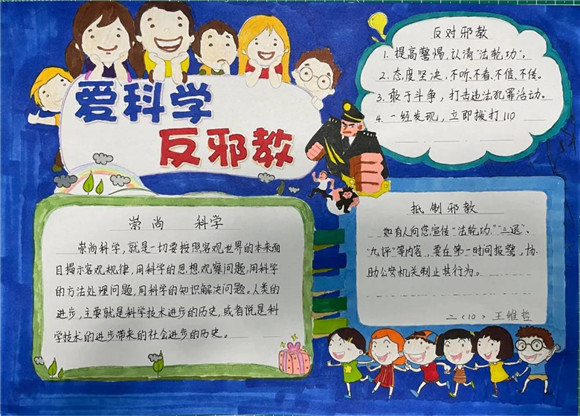 爱科学
反邪教
反对邪教
1. 提高警惕,认清"法轮功"。
2. 态度坚决,不听、不看、不信、不传。
3. 敢于斗争,打击违法犯罪活动。
4. 一经发现,立即拨打110
崇尚 科学
崇尚科学,就是一切要按照客观世界的本来面
目揭示客观规律,用科学的思想观察问题,用科学
的方法处理问题,用科学的知识解决问题。人类的
进步,主要就是科学技术进步的历史,或者说是科
学技术的进步带来的社会进步的历史。
抵制邪教
如有人向您宣传"法轮功"、"三退"、
"九评"等内容,要在第一时间报警,协
助公安机关制止其行为。
二(10) 王维哲